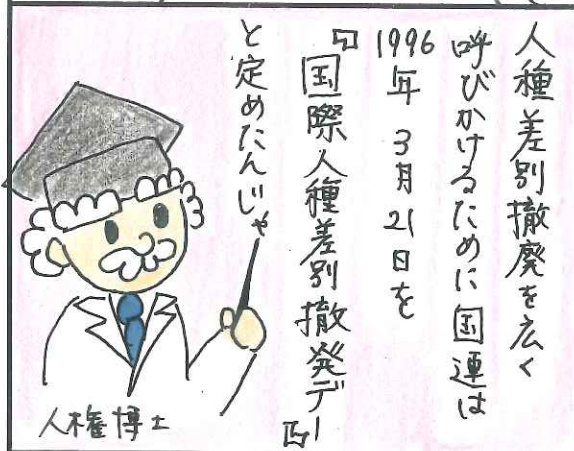 人種差別撤廃を広く
呼びかけるために国連は
1996年 3月21日を
『国際人種差別撤発デー』
と定めたんじゃ
人権博士